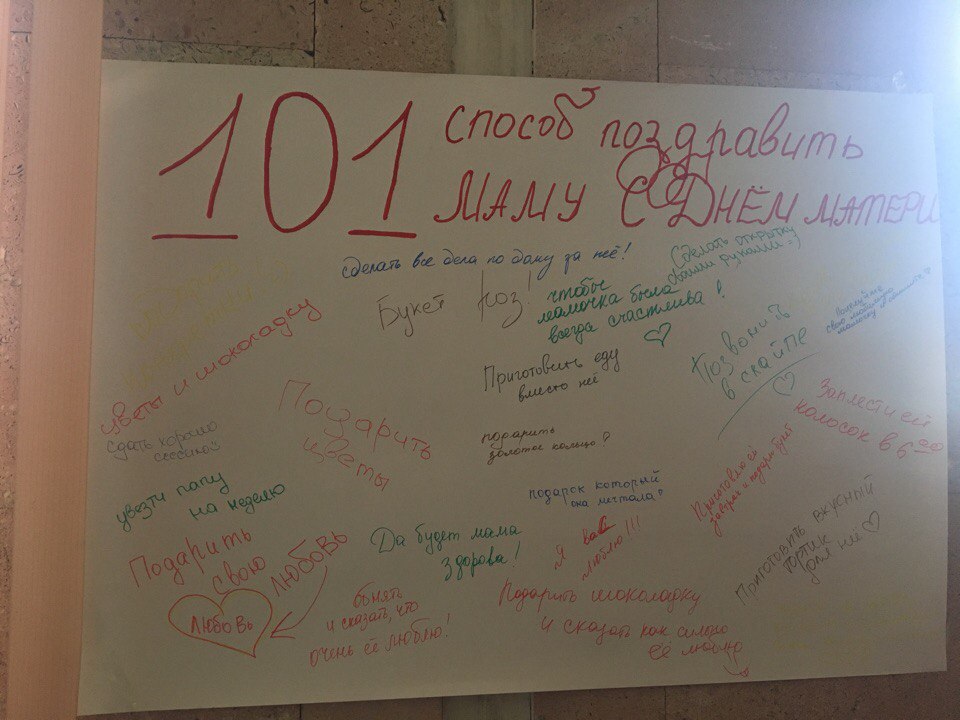 101 способ поздравить
маму с Днём матери
сделать все дела по дому за неё!
Сделать открытку
своими руками =)
Букет роз!
чтобы
мамочка была
всегда счастлива!
Позвонить
в скайпе
свою любимую
мамочку
цветы и шоколадку
Приготовить еду
вместо неё
Заплести ей
колосок в 6:00
Подарить
цветы
сдать хорошо
сессию
подарить
золотое кольцо
увезти папу
на неделю
подарок который
она мечтала
Приготовлю ей
завтрак и подарю букет
Приготовить вкусный
тортик
для неё
Да будет мама
здорова!
Я вас
люблю!!!
Подарить
свою
любовь
Любовь
обнять
и сказать, что
очень её люблю!
Подарить шоколадку
и сказать как сильно
её люблю